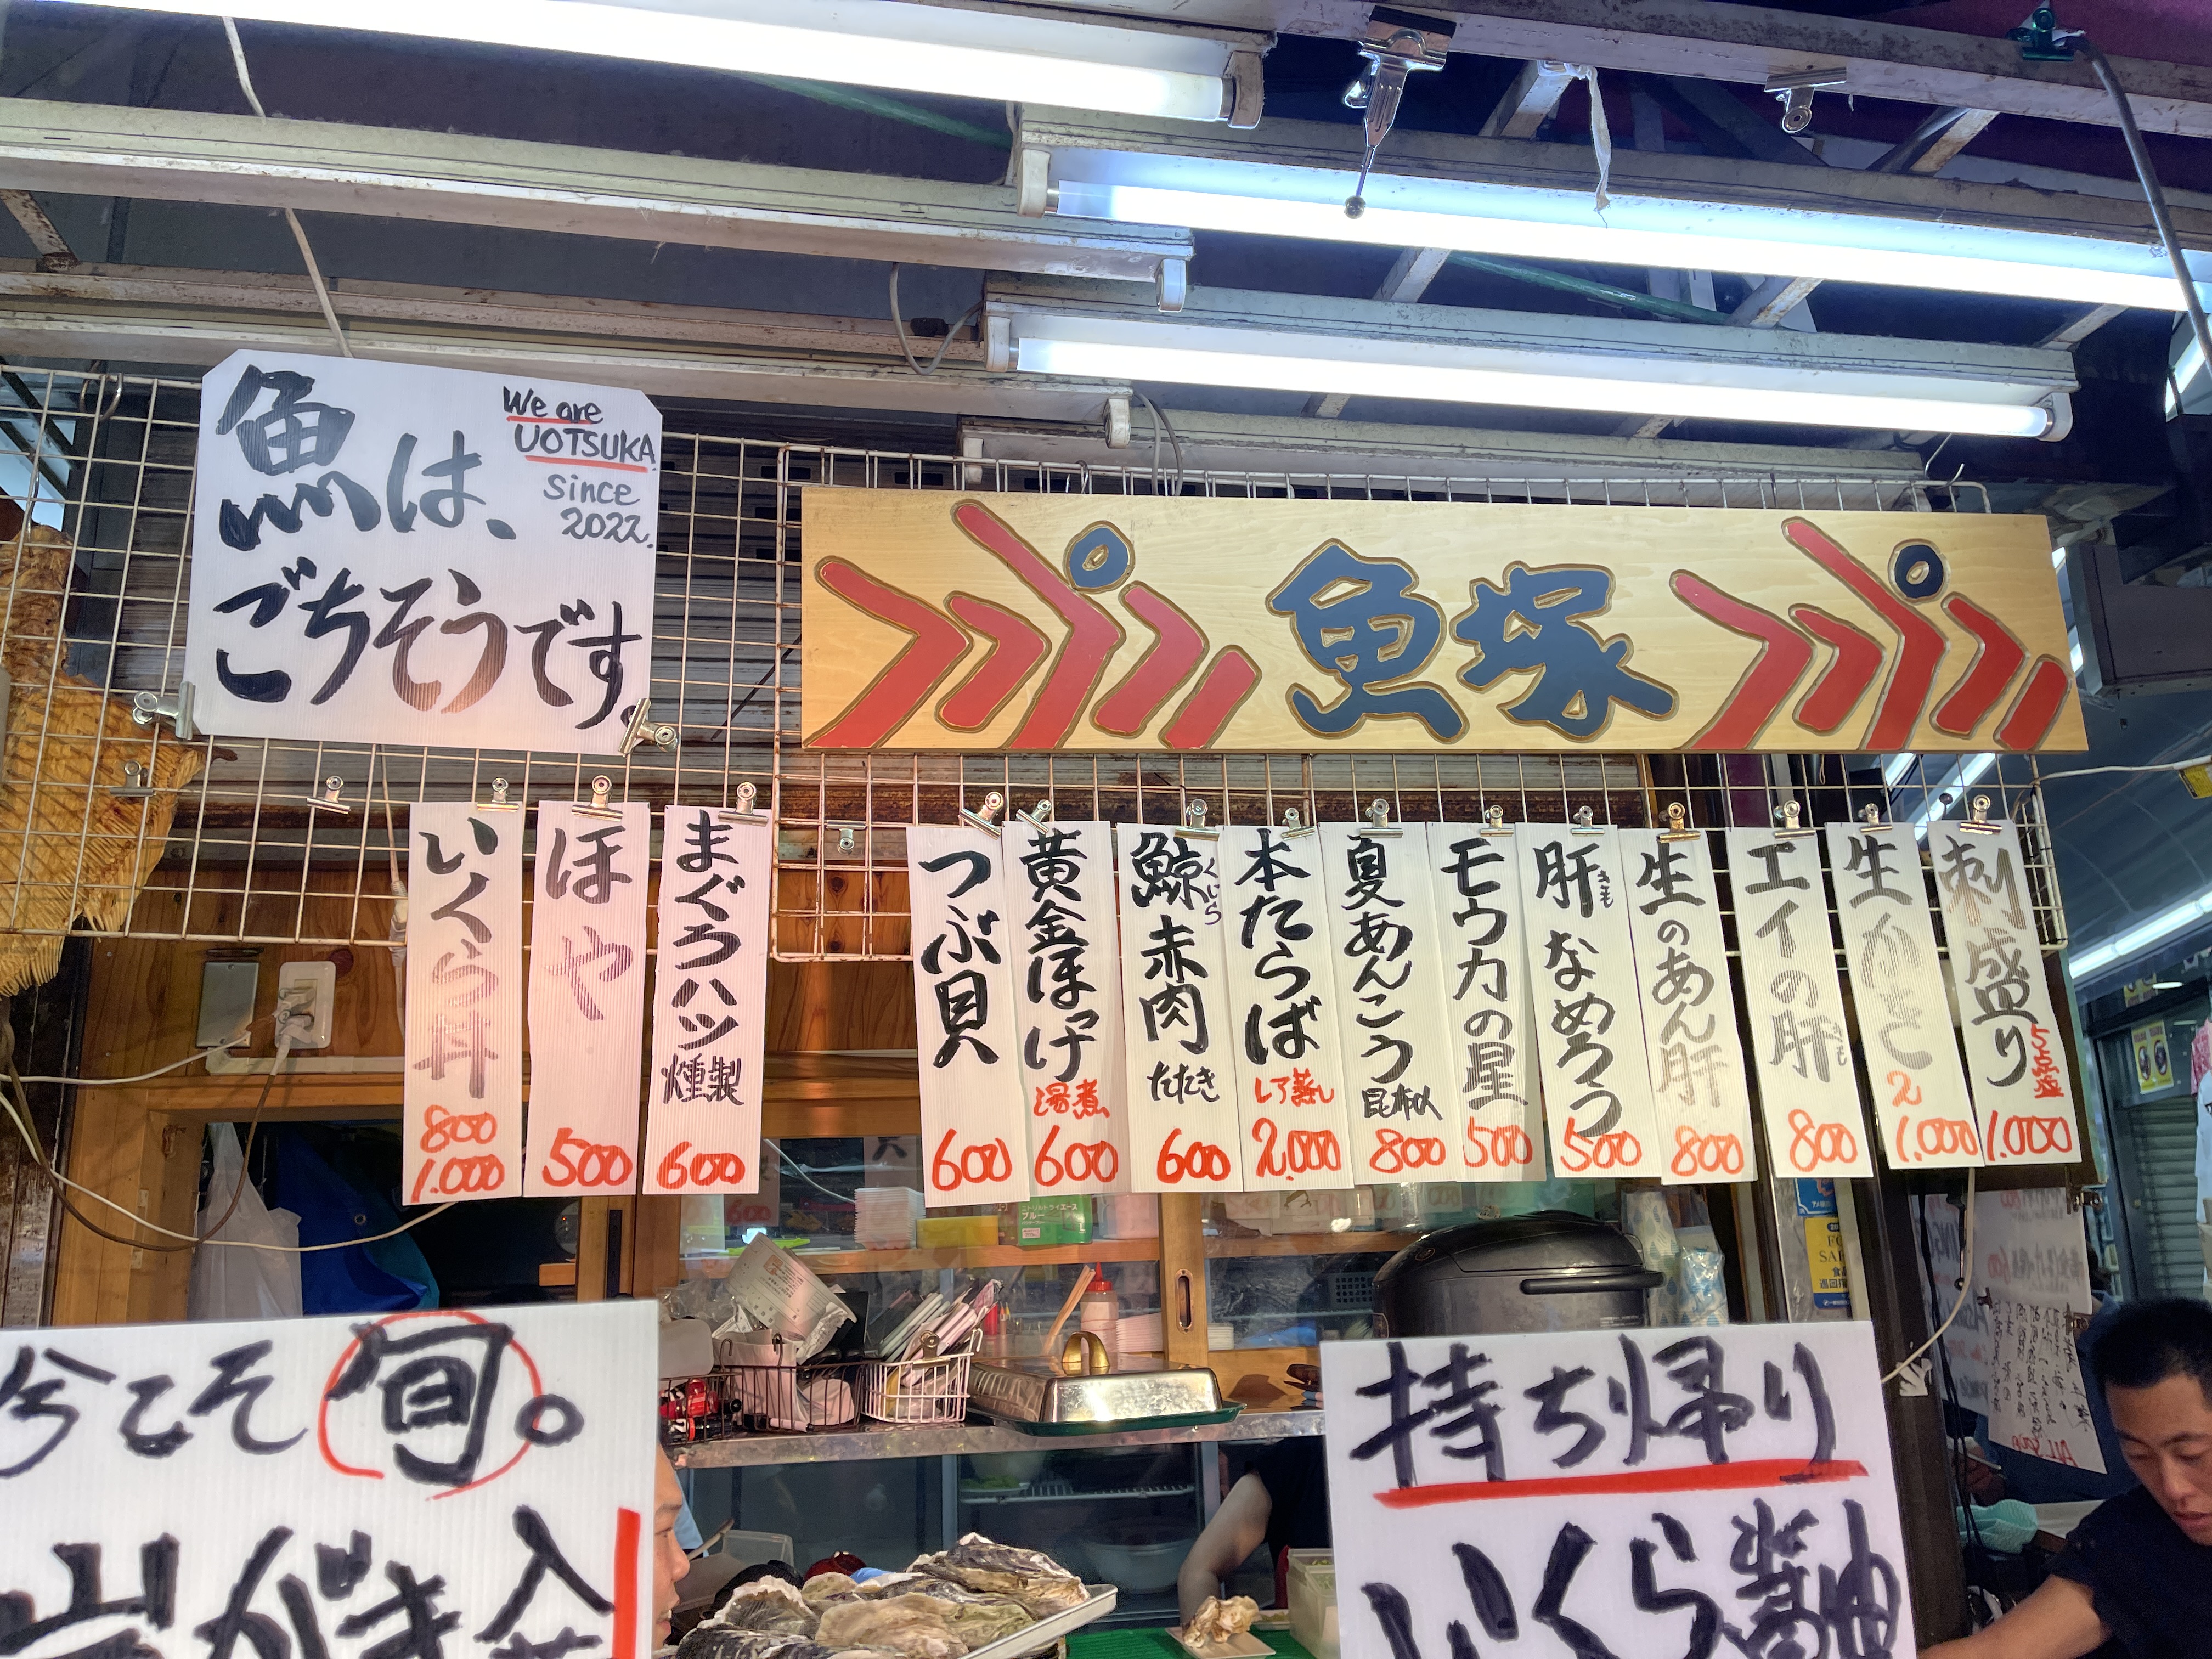 魚は、
ごちそうです。
We are
UOTSUKA
since
2022.
魚塚
いくら丼
800
1.000
ほや
500
まぐろハツ
燻製
600
つぶ貝
600
黄金ほっけ
湯煮
600
鯨赤肉
くじら
たたき
600
本たらば
レア蒸し
2.000
夏あんこう
昆布〆
800
モウカの星
500
肝なめろう
きも
500
生のあん肝
800
エイの肝
きも
800
生かき
2
1.000
刺盛り
5点盛
1.000
今こそ旬。
岩がき入荷
持ち帰り
いくら醤油